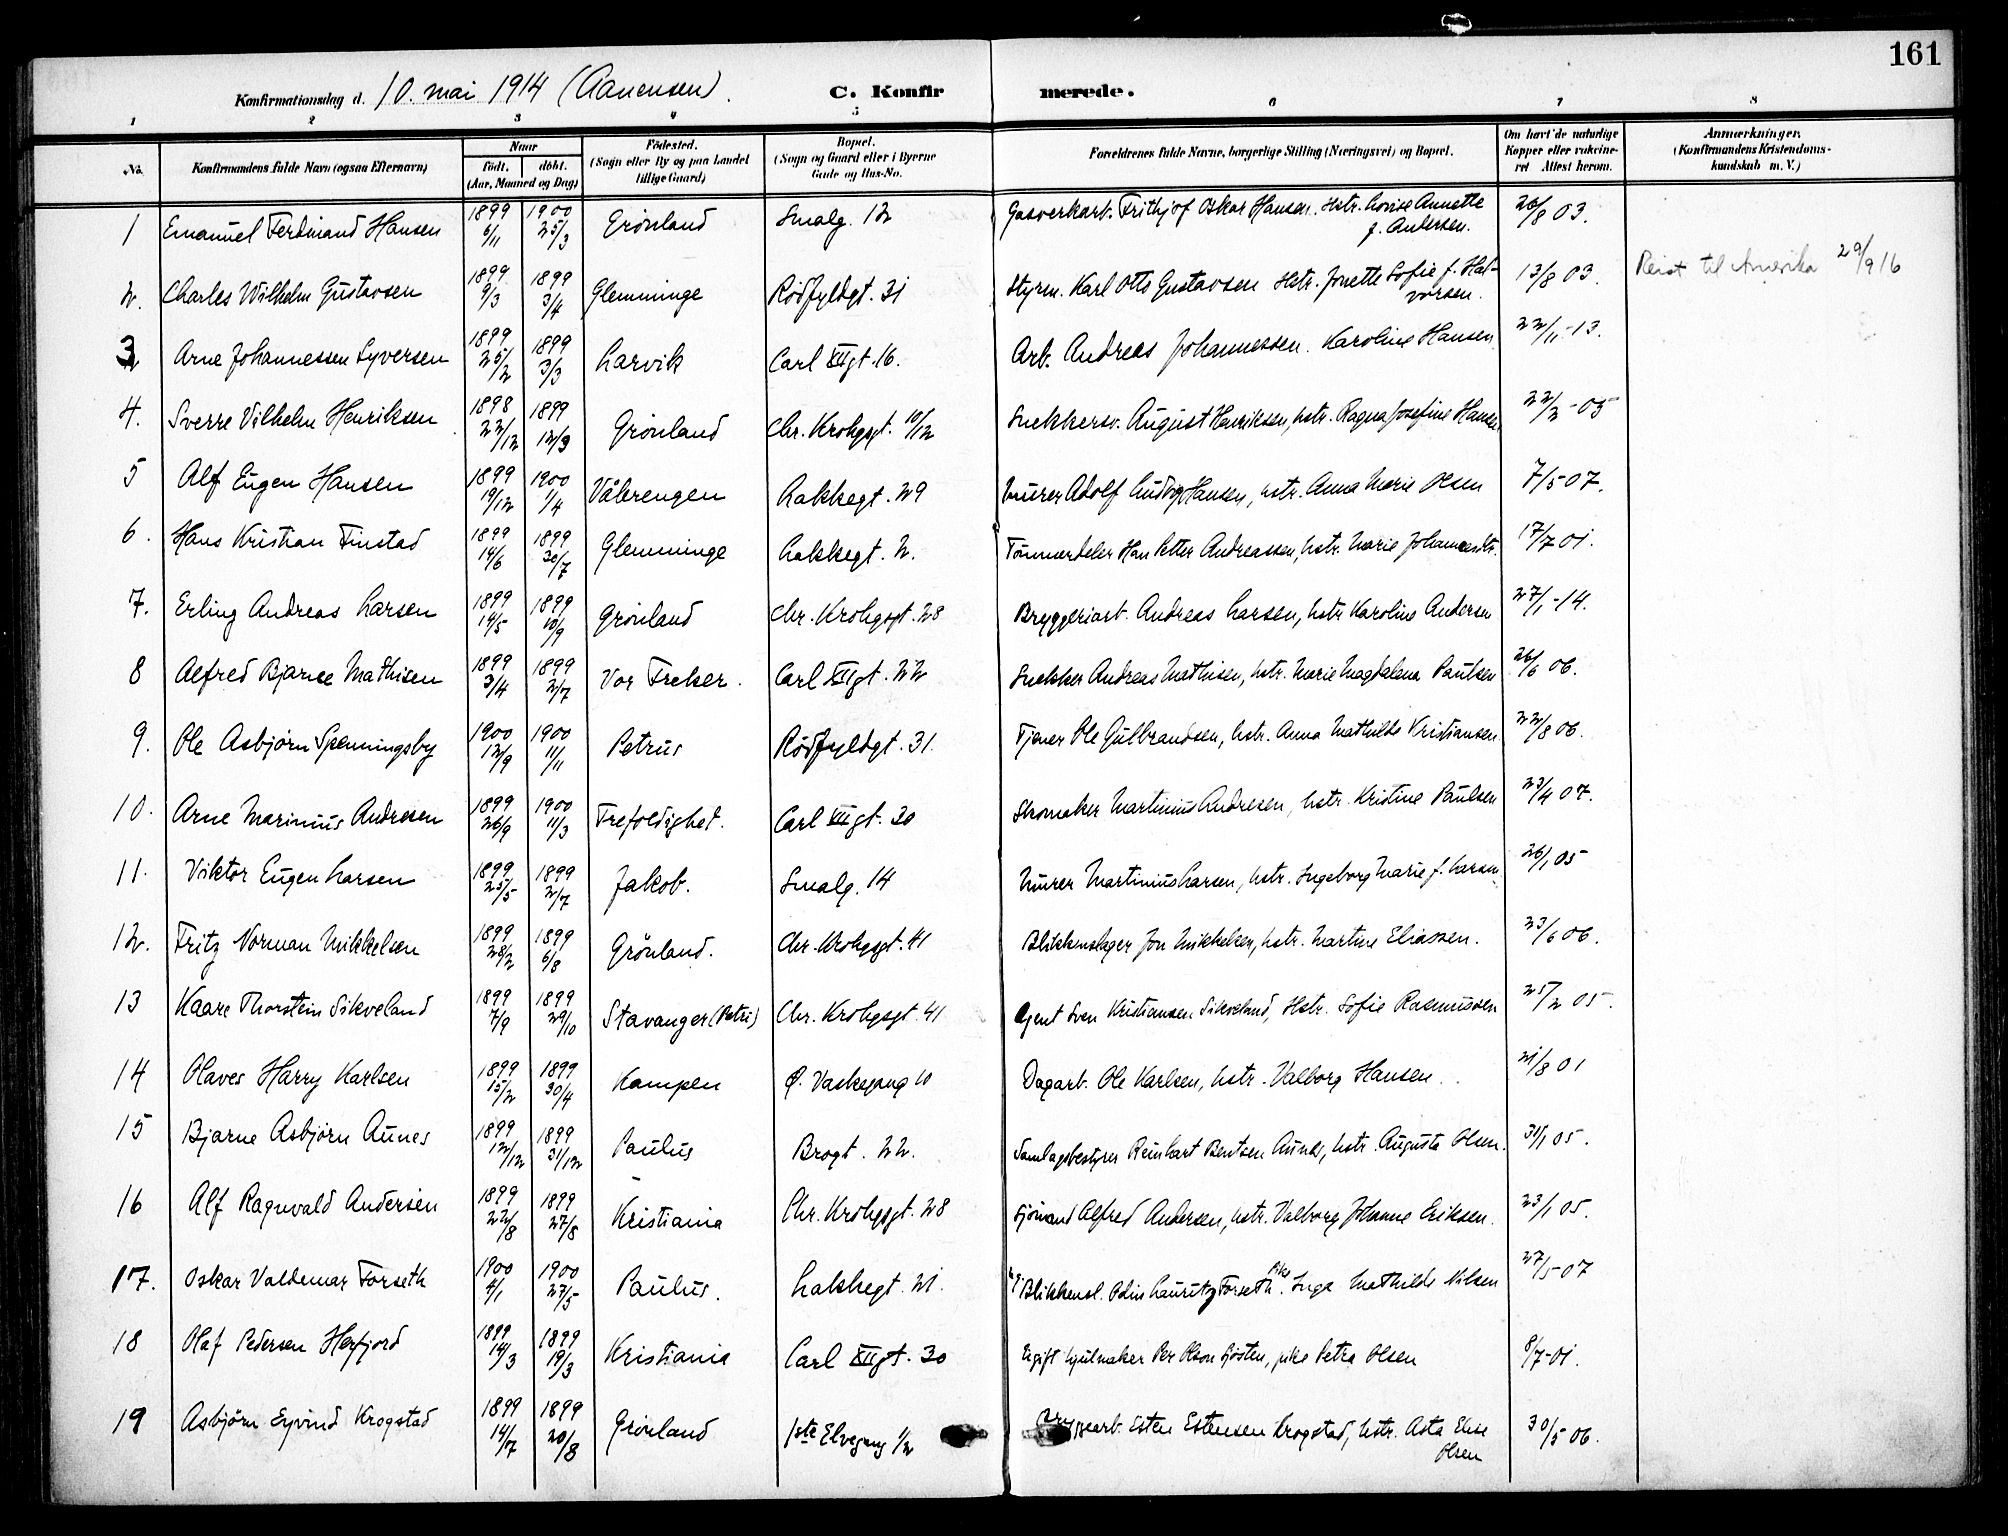 161
Konfirmationsdag d. 10. mai 1914 (Aanensen).
C. Konfirmerede.
1 2 3 4 5 6 7 8
No. Konfirmandens fulde Navn (ogsaa Efternavn) Naar født. døbt. (Aar, Maaned og Dag) Fødested. (Sogn eller By og paa Landet tillige Gaard) Bopæl. (Sogn og Gaard eller i Byerne Gade og Hus-No. Forældrenes fulde Navne, borgerlige Stilling (Næringsvei) og Bopæl. Om havt de naturlige Kopper eller vakcineret Attest herom. Anmærkninger. (Konfirmandens Kristendomskundskab m. V.)
1 Emanuel Ferdinand Hansen 1899 6/11 1900 25/3 Grønland Smalg. 12 Gasverkarb. Frithjof Oskar Hansen. Hstr. Lovise Annette f. Andersen. 26/8 03.
2. Charles Wilhelm Gustavsen 1899 9/3 1899 3/4 Glemminge Rødfyldgt. 31 Styrm. Karl Otto Gustavsen Hstr. Jonette Sofie f. Halvorsen. 13/8 03. Reist til Amerika 29/9 16
3 Arne Johannessen Syversen 1899 25/2 1899 3/3 Larvik Carl XIIgt. 16. Arb. Andreas Johannessen. Karoline Hansen 22/11-13.
4. Sverre Vilhelm Henriksen 1898 22/12 1899 12/3 Grønland Chr. Krohgsgt. 10/12 Snekkersv. August Henriksen, hstr. Ragna Josefine Hansen 22/2-05
5 Alf Eugen Hansen 1899 19/12 1900 1/4 Vålerengen Lakkegt. 29 Murer Adolf Ludvig Hansen, hstr. Anna Marie Olsen 7/5-07.
6. Hans Kristian Finstad 1899 14/6 1899 30/7 Glemminge Lakkegt. 2. Tømmerdeler Han Petter Andreassen, hstr. Marie 17/7 01.
7. Erling Andreas Larsen 1899 14/5 1899 10/9 Grønland Chr. Krohgsgt. 28 Bryggeriarb. Andreas Larsen, hstr Karoline Andersen 27/1-14.
8 Alfred Bjarne Mathisen 1899 3/4 1899 2/7 Vor Frelser. Carl XIIgt. 22 Snekker Andreas Mathisen, hstr. Marie Magdalena Paulsen 26/6 06.
9. Ole Asbjørn Spenningsby 1900 12/9 1900 11/11 Petrus Rødfyldgt. 31. Tjener Ole Gulbrandsen, hstr. Anna Mathilde Kristiansen 22/8 06.
10. Arne Marinius Andresen 1899 26/9 1900 11/3 Trefoldighet. Carl XIIgt. 30 Skomaker Martinius Andresen, hstr. Kristine Paulsen 23/4 07.
11. Viktor Eugen Larsen 1899 25/5 1899 2/7 Jakob. Smalg. 14 Murer Martinius Larsen, hstr. Ingeborg Marie f. Larsen 26/1 05
12. Fritz Norman Mikkelsen 1899 28/2 1899 6/8 Grønland. Chr. Krohgsgt. 41 Blikkenslager Jon Mikkelsen, hstr. Martine Eliassen. 23/6 06.
13 Kaare Thorstein Sikveland 1899 7/9 1899 29/10 Stavanger (Petri) Chr. Krohgsgt. 41 Agent Sven Kristiansen Sikveland, Hstr. Sofie Rasmussen 25/2 05.
14 Olaves Harry Karlsen 1899 15/2 1899 30/4 Kampen Ø. Vaskegang 10 Dagarb. Ole Karlsen, hstr. Valborg Hansen. 21/8 01
15 Bjarne Asbjørn Aunes 1899 12/12 1899 31/12 Paulus Brogt. 22. Samlagsbestyrer Reinhart Bentsen Aunes, hstr. Augusta Olsen. 31/1 05.
16 Alf Ragnvald Andersen 1899 22/8 1899 27/8 Kristiania Chr. Krohgsgt. 28 Sjømand Alfred Andersen, hstr. Valborg Johanne Eriksen. 23/1 05.
17. Oskar Valdemar Forseth 1900 4/1 1900 27/5 Paulus. Lakkegt. 21. Blikkensl. Odin Lauritz Forseth. Pike Inga Mathilde Nilsen 27/5-07
18 Olaf Pedersen Herfjord 1899 14/3 1899 19/3 Kristiania Carl XIIgt. 30 Ugift hjulmaker Per Olson Sjøsten, pike Petra Olsen 8/7-01.
19 Asbjørn Eyvind Krogstad 1899 14/7 1899 20/8 Grønland 1ste Elvegang 1/2 Estensen Krogstad, hstr. Asta Elise Olsen 30/5 06.